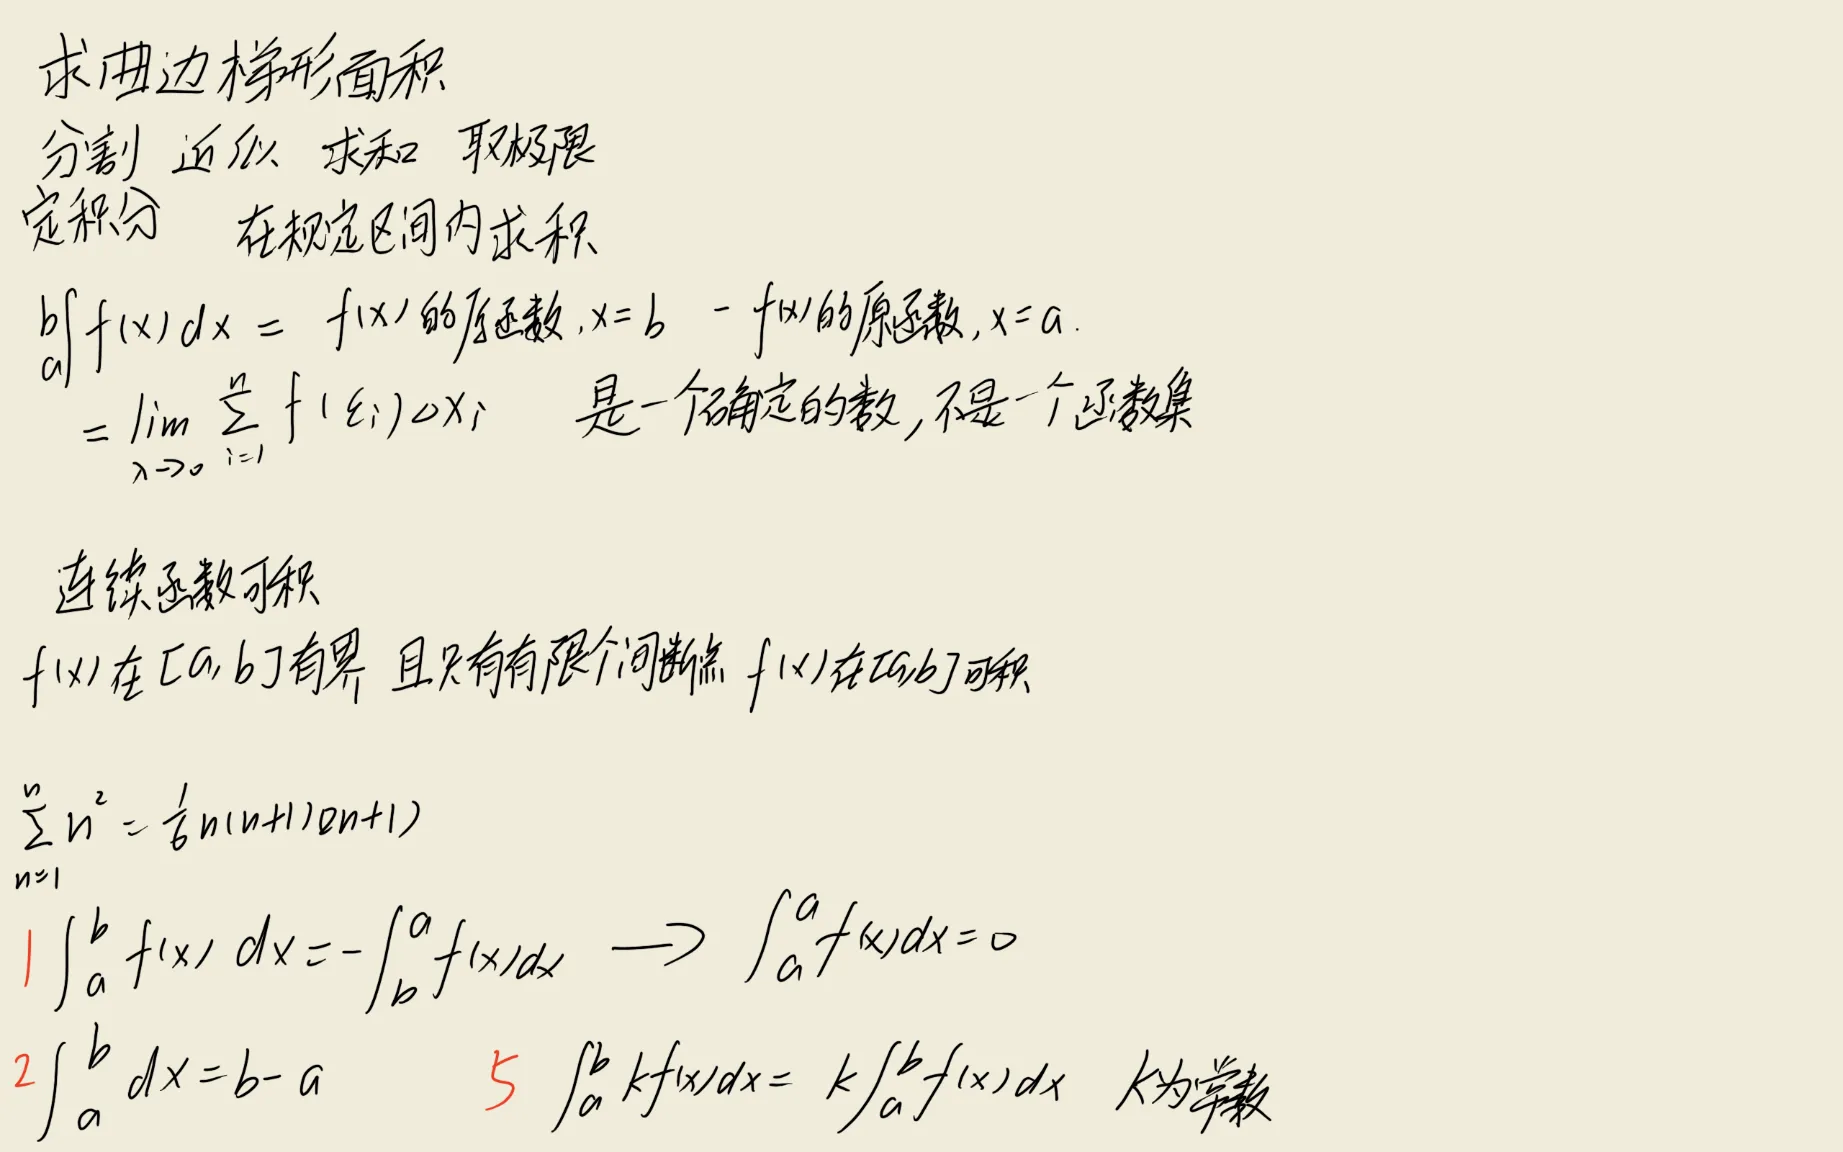 求曲边梯形面积
分割 近似 求和 取极限
定积分 在规定区间内求积
b∫a f(x)dx = f(x)的原函数,x=b - f(x)的原函数,x=a.
= lim λ→0 n∑i=1 f(ξi)△xi 是一个确定的数,不是一个函数集
连续函数可积
f(x)在[a,b]有界 且只有有限个间断点 f(x)在[a,b]可积
n∑n=1 n² = 1/6 n(n+1)(2n+1)
1 ∫ₐᵇ f(x) dx = -∫ᵇₐ f(x)dx → ∫ₐᵃ f(x)dx = 0
2 ∫ₐᵇ dx = b-a 5 ∫ₐᵇ kf(x)dx = k∫ₐᵇ f(x)dx k为常数